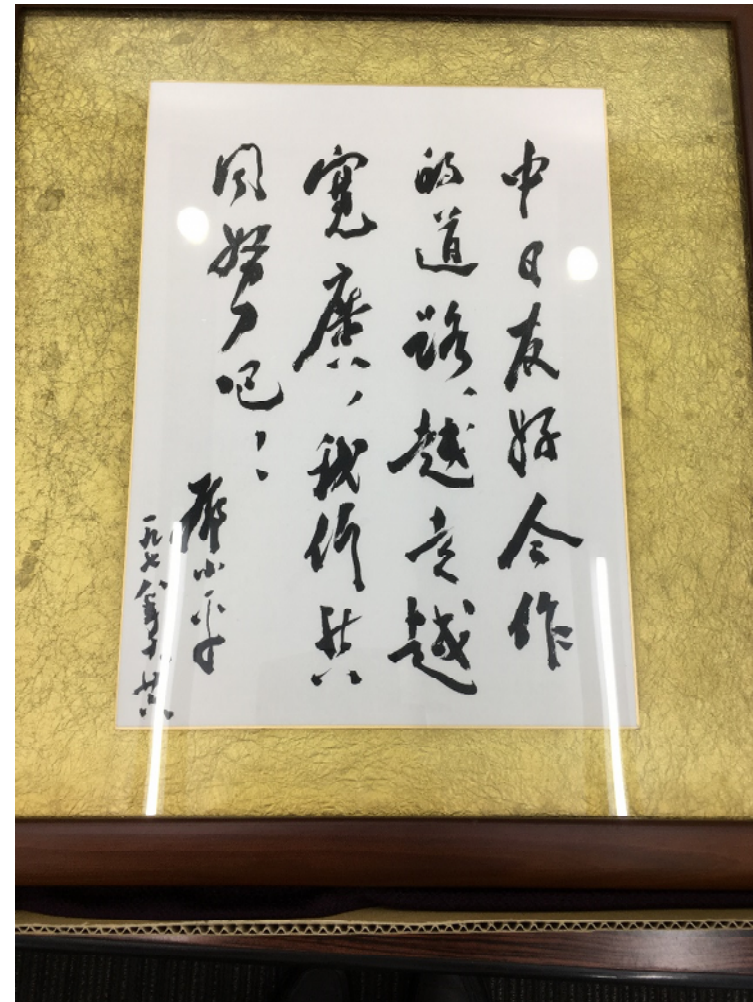 中日友好合作
的道路，越走越
宽广，我们共
同努力吧！
邓小平
一九七八年十、廿六